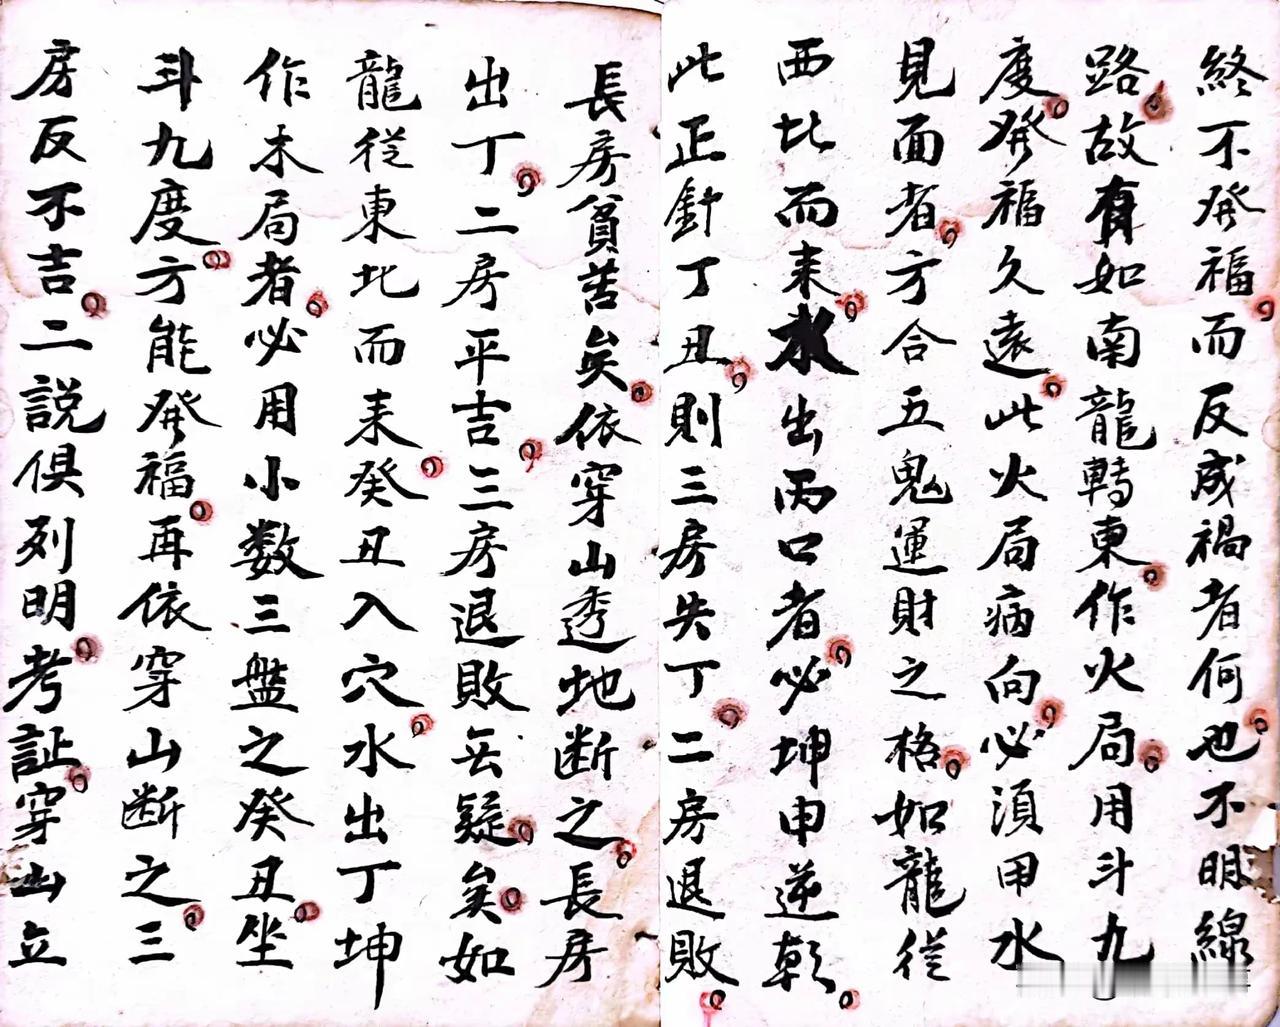 終不發福而反成禍者何也不明線
路故有如南龍轉東作火局用斗九
度發福久遠此火局病向必須甲水
見面者方合五鬼運財之格如龍從
西北而来水出丙口者必坤申逆乾
此正針丁丑則三房失丁二房退敗
長房貧苦矣依穿山透地断之長房
出丁二房平吉三房退敗無疑矣如
龍從東北而来癸丑入穴水出丁坤
作木局者必用小数三盤之癸丑坐
斗九度方能發福再依穿山断之三
房反不吉二説俱列明考証穿山立